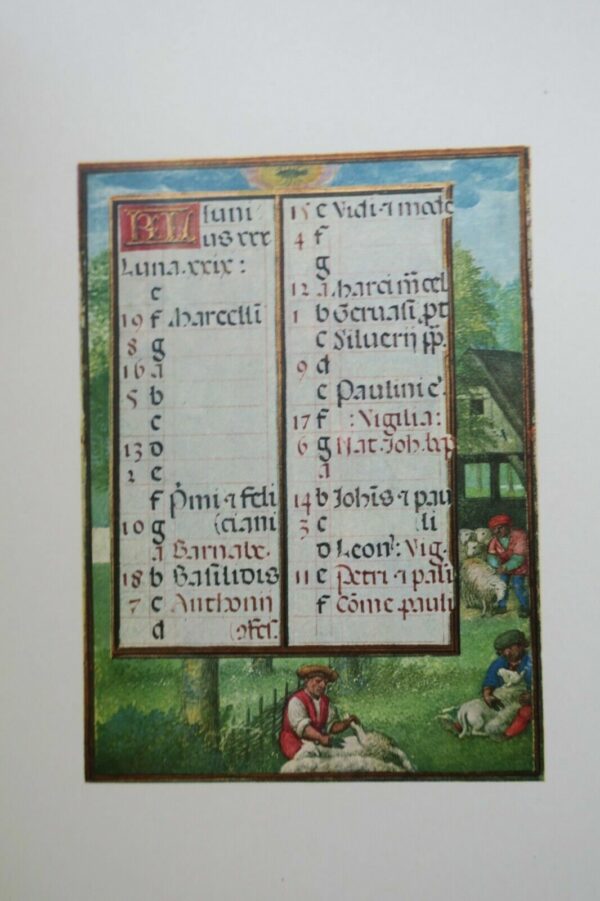 KL Iuni
us xxx
Luna. xxix:
e
19 f Marcelli
8 g
16 a
5 b
c
13 d
2 e
f P̄mi ⁊ feli
10 g (ciani
a Barnabe.
18 b Basilidis
7 c Anthonii
d (ꝯfes.
15 e Viti ⁊ mode
4 f
g
12 a Marci m̄cel
1 b Geruasii pt
c Siluerij pp̄.
9 d
e Paulini e
17 f :Vigilia:
6 g Nat. Joh. bap
a
14 b Johīs ⁊ pau
3 c (li
d Leon: Vig.
11 e Petri ⁊ pauli
f Cōme pauli